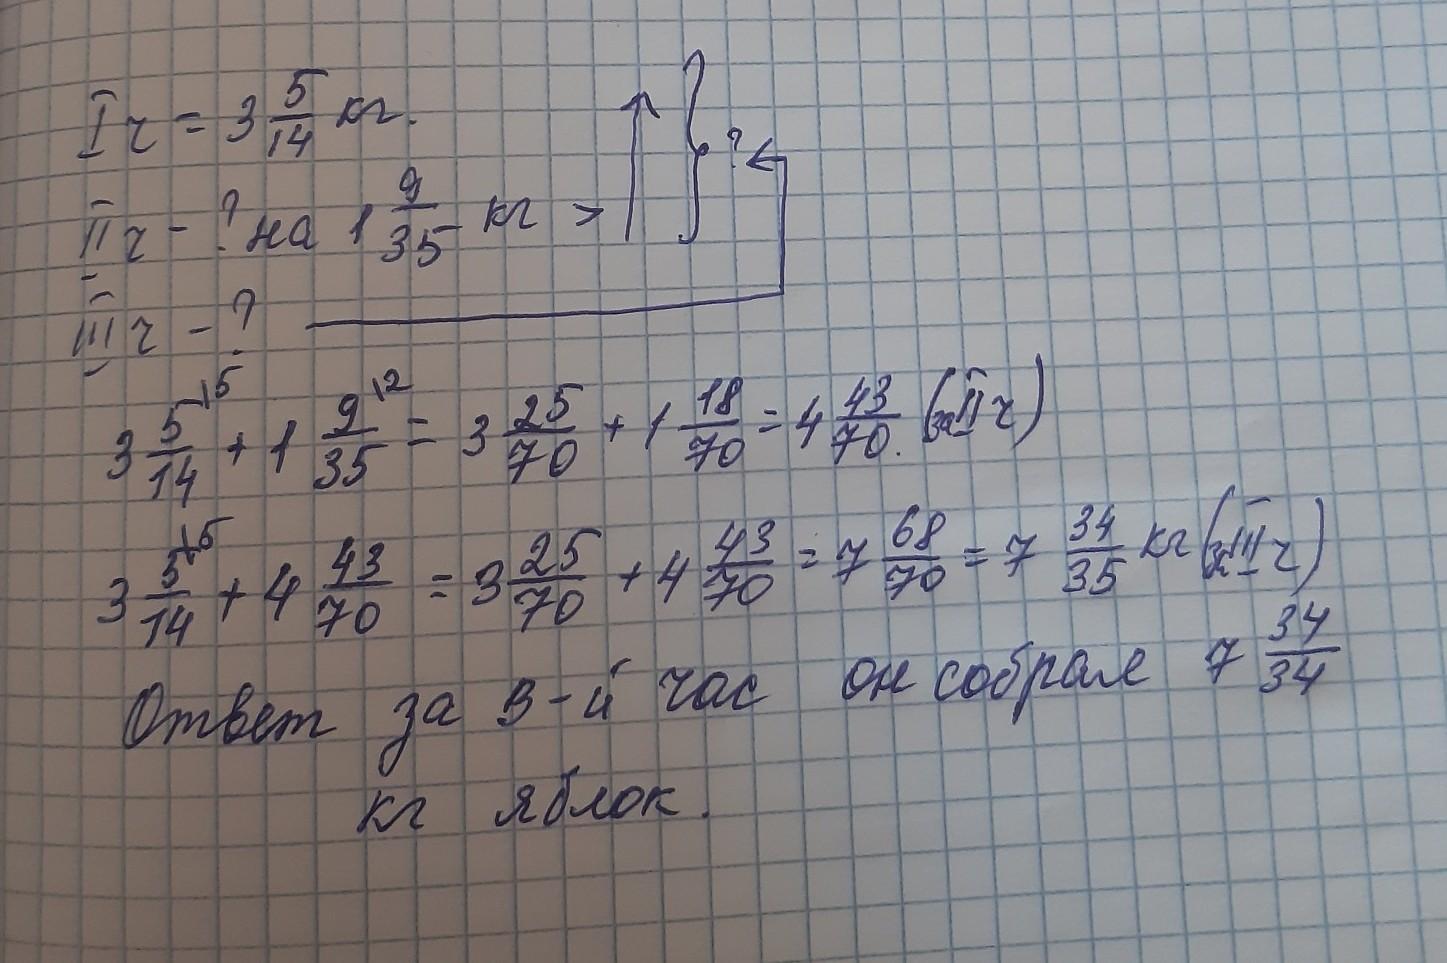 I ч = 3 5/14 кг.
II ч - ? на 1 9/35 кг > ?
III ч - ?
3 5/14 \5 + 1 9/35 \2 = 3 25/70 + 1 18/70 = 4 43/70. (за II ч)
3 5/14 \5 + 4 43/70 = 3 25/70 + 4 43/70 = 7 68/70 = 7 34/35 кг (за III ч)
Ответ за 3-й час он собрал 7 34/34
кг яблок.